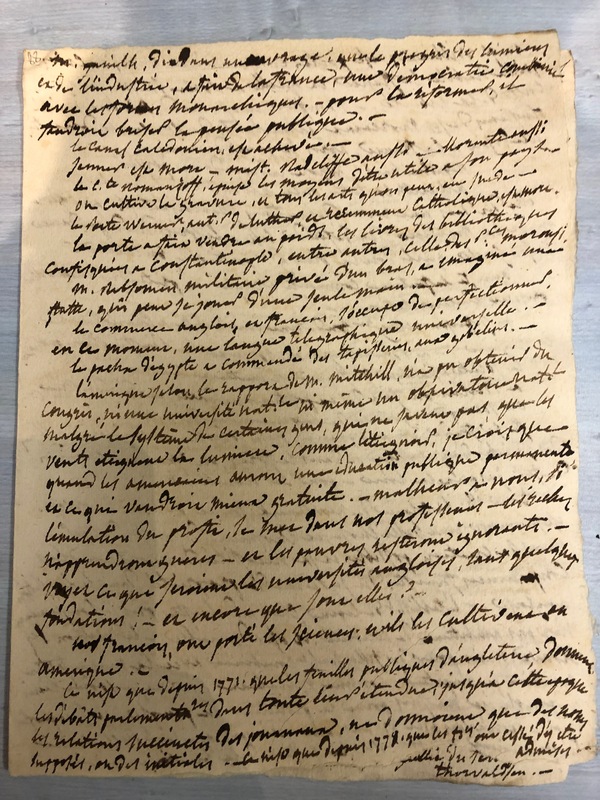 dit dans un ouvrage, que le progrès des lumieres
et de l'industrie, a fait de la france, une démocratie
avec les formes monarchiques. - pour la reformer, il
faudroit briser la pensée publique. -
le canal Calédonien, est achevé. -
est mort - mist. Radcliffe aussi -
le c.te Romanzoff, les moyens d'etre utile a son pays -
on cultive la gravure, et tous les arts qu'on peut, en suede -
le poete Werner, aut. de luther, est mort.
la porte a fait vendre au poids, les livres des bibliotheques
confisquées a Constantinople, entre autres, celle des morousi
m. militaire privé d'un bras, a imaginé une
flutte, qui peut se jouer d'une seule main -
le commerce anglois, et francois, s'occupe de perfectionner,
en ce moment, une langue telegraphique universelle. -
le pacha d'égypte a commandé des tapisseries, aux gobelins. -
l'amérique selon le rapport de m. mitchill, n'a pu obtenir du
Congrès, ni une université nat.le ni même un observatoire
malgré le système de certaines gens, qui ne savent pas, que les
vents eteignent la lumiere, comme je crois que
quand les americains auront une éducation publique permanente
et ce qui vaudroit mieux gratuite. - malheur a nous, si
l'émulation du profit, se met dans nos professeurs - les riches
n'apprendront gueres - et les pauvres resteront ignorants. -
voyez ce que seroient les universités angloises, sans quelques
fondations! - et encore que sont elles? -
nos francois, ont porté les sciences, et ils les cultivent en
amerique. -
Ce n'est que depuis 1771. que les feuilles publiques d'angleterre, donnent
les débats parlementres dans toute leur étendue, jusqu'a cette epoque
les relations succinctes des journaux, ne donnoient que des noms
supposés, ou des initiales - ce n'est que depuis 1778. que les ont été
admises -
thorvaldsen. -